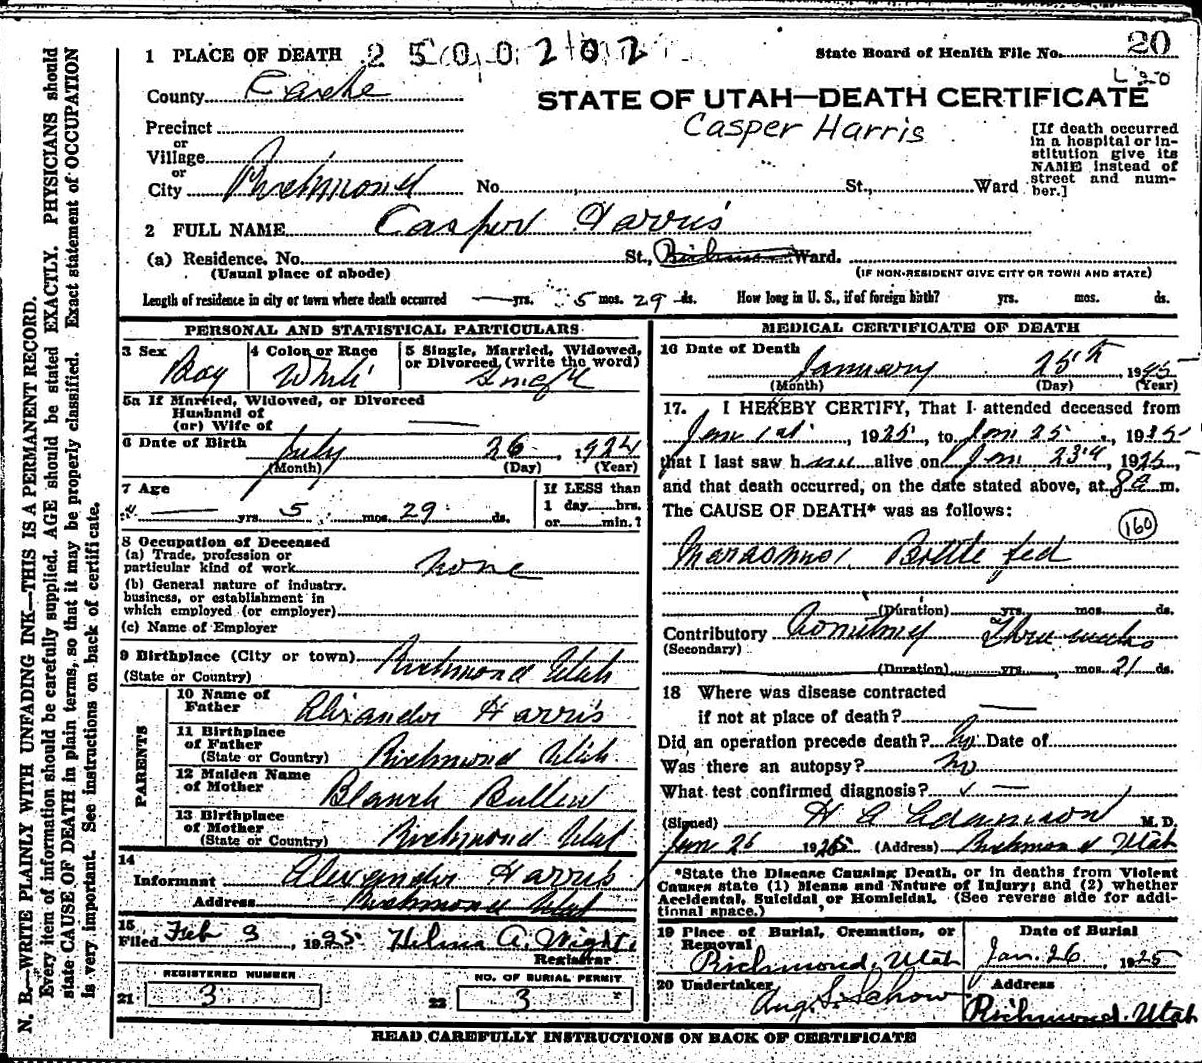 1 PLACE OF DEATH 2500202 State Board of Health File No. 20
County Cache
STATE OF UTAH—DEATH CERTIFICATE
Casper Harris
Precinct
or
Village
or
City Richmond No. St., Ward
[If death occurred
in a hospital or in-
stitution give its
NAME instead of
street and num-
ber.]
2 FULL NAME Casper Harris
(a) Residence. No. St., Richmond Ward.
(Usual place of abode) (IF NON-RESIDENT GIVE CITY OR TOWN AND STATE)
Length of residence in city or town where death occurred — yrs. 5 mos. 29 ds. How long in U. S., if of foreign birth? yrs. mos. ds.
PERSONAL AND STATISTICAL PARTICULARS
3 Sex Boy
4 Color or Race White
5 Single, Married, Widowed,
or Divorced (write the word)
Single
5a If Married, Widowed, or Divorced
Husband of
(or) Wife of —
6 Date of Birth July 26 1924
(Month) (Day) (Year)
7 Age — yrs. 5 mos. 29 ds.
If LESS than
1 day hrs.
or min.?
8 Occupation of Deceased
(a) Trade, profession or
particular kind of work none
(b) General nature of industry,
business, or establishment in
which employed (or employer)
(c) Name of Employer
9 Birthplace (City or town) Richmond Utah
(State or Country)
PARENTS
10 Name of
Father Alexander Harris
11 Birthplace
of Father
(State or Country) Richmond Utah
12 Maiden Name
of Mother Blanch Bullen
13 Birthplace
of Mother
(State or Country) Richmond Utah
14
Informant Alexander Harris
Address Richmond Utah
15
Filed Feb 3, 1925 A. Wight
Registrar
REGISTERED NUMBER
21 3
NO. OF BURIAL PERMIT
22 3
MEDICAL CERTIFICATE OF DEATH
16 Date of Death
January 25th 1925
(Month) (Day) (Year)
17. I HEREBY CERTIFY, That I attended deceased from
Jan 1st, 1925, to Jan 25, 1925
that I last saw h alive on Jan 23rd, 1925,
and that death occurred, on the date stated above, at 8a m.
The CAUSE OF DEATH* was as follows:
160
Marasmus. Bottle fed
(Duration) yrs. mos. ds.
Contributory Three weeks
(Secondary)
(Duration) yrs. mos. 21 ds.
18 Where was disease contracted
if not at place of death? —
Did an operation precede death? no Date of
Was there an autopsy? no
What test confirmed diagnosis? —
(Signed) H G Adamson M. D.
Jan 26 1925 (Address) Richmond Utah
*State the Disease Causing Death, or in deaths from Violent
Causes state (1) Means and Nature of Injury; and (2) whether
Accidental, Suicidal or Homicidal. (See reverse side for addi-
tional space.)
19 Place of Burial, Cremation, or
Removal
Richmond, Utah
Date of Burial
Jan. 26, 1925
20 Undertaker
Aug. S. Schow
Address
Richmond, Utah
READ CAREFULLY INSTRUCTIONS ON BACK OF CERTIFICATE
N. B.—WRITE PLAINLY WITH UNFADING INK—THIS IS A PERMANENT RECORD.
Every item of information should be carefully supplied. AGE should be stated EXACTLY. PHYSICIANS should
state CAUSE OF DEATH in plain terms, so that it may be properly classified. Exact statement of OCCUPATION
is very important. See instructions on back of certificate.